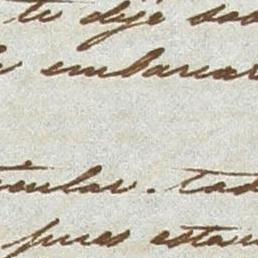 te dije sob
embarcar
cular. Tod
pues estar